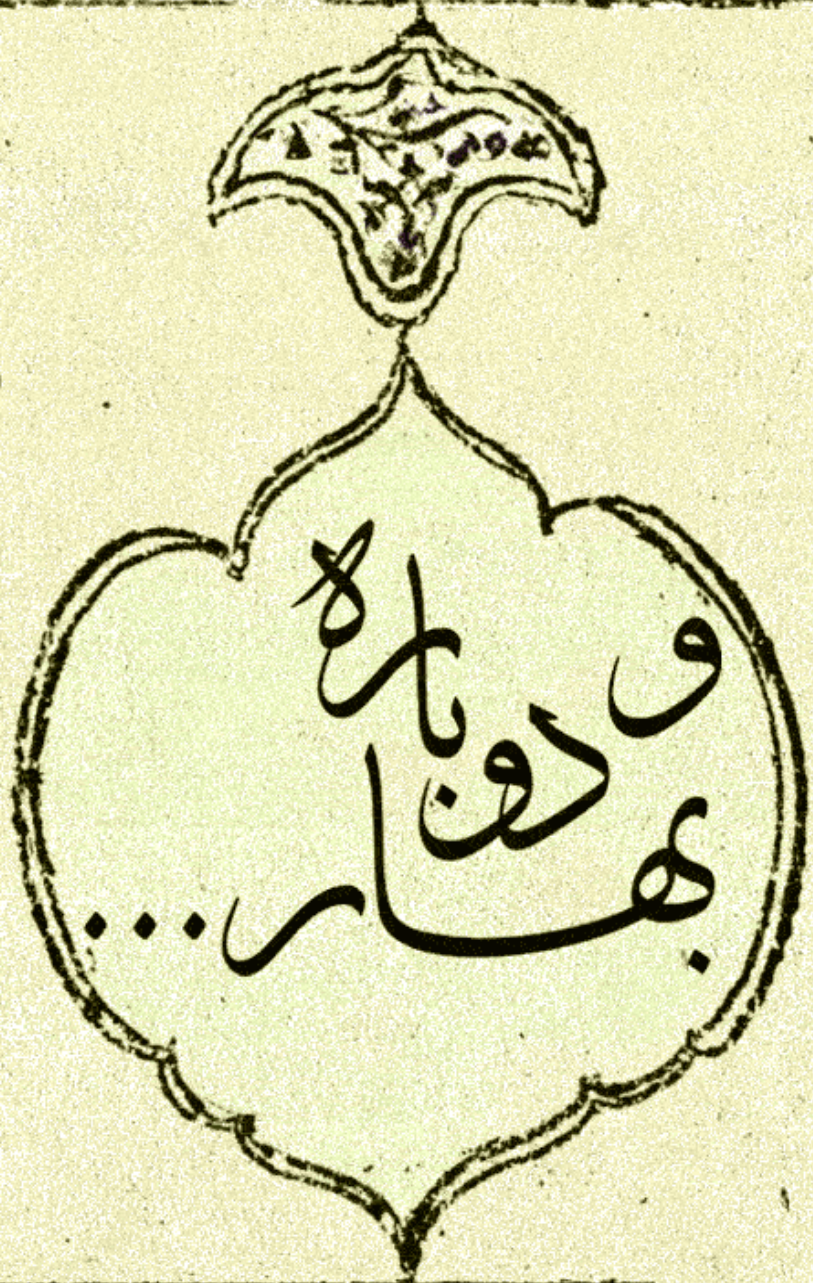 و دوباره
بهار...